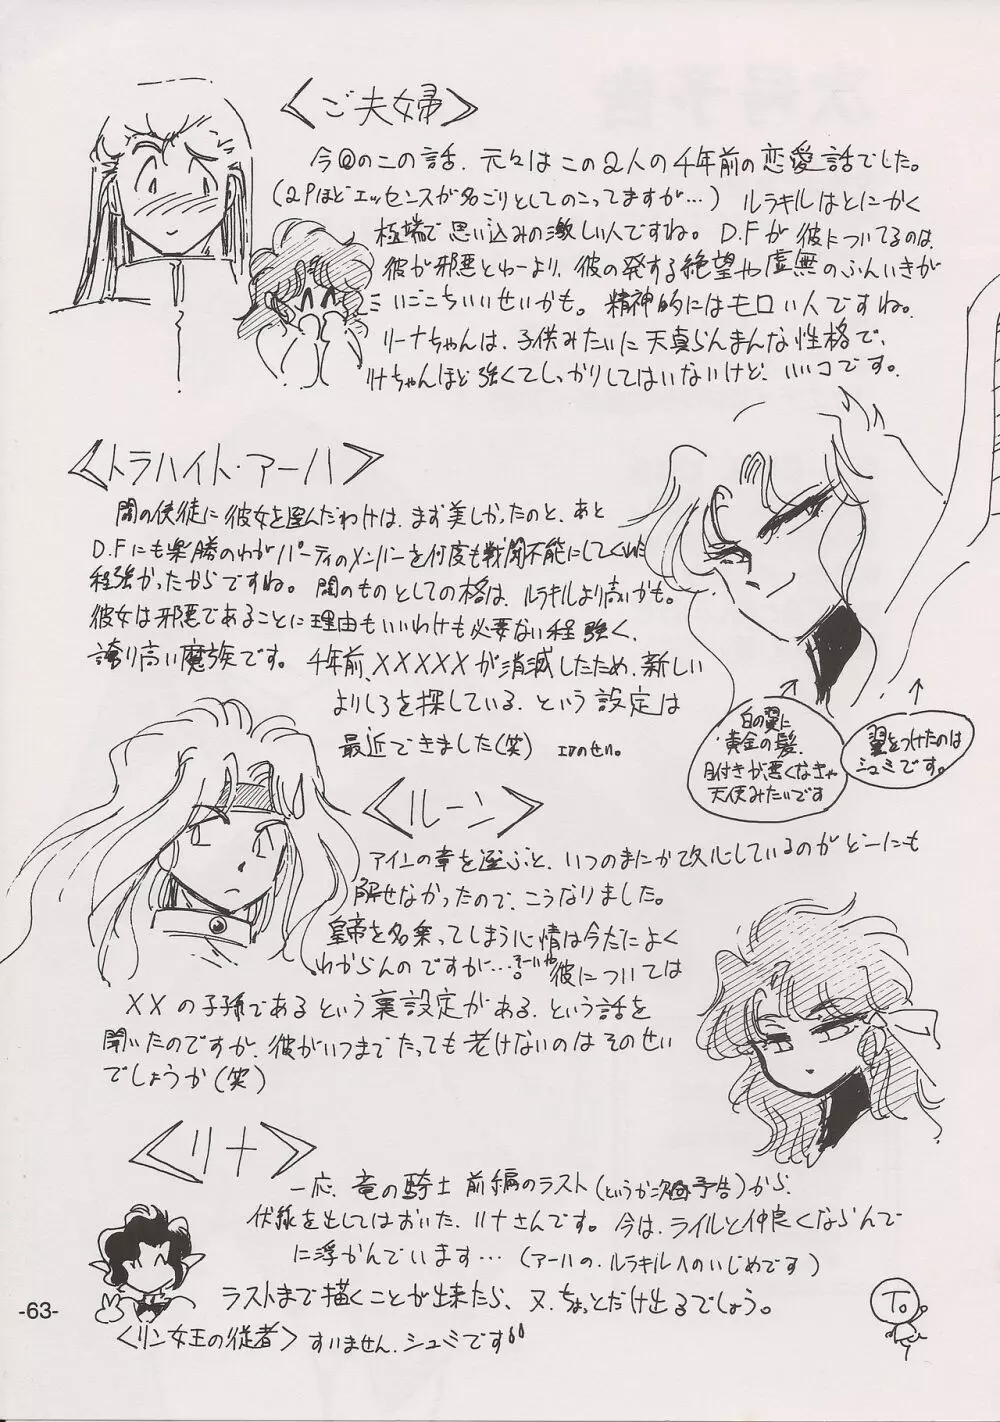 <ご夫婦>
今回のこの話、元々はこの2人の千年前の恋愛話でした。
(2Pほどエッセンスが名ごりとしてのこってますが…) ルラキルはとにかく
極端で思い込みの激しい人ですね。D.Fが彼についてるのは、
彼が邪悪とゆーより、彼の発する絶望や虚無のふんいきが
いごこちいいせいかも。精神的にはモロい人ですね。
リーナちゃんは、子供みたいに天真らんまんな性格で、
リナちゃんほど強くてしっかりしてはいないけど、いいコです。
<トラハイト・アーハ>
闇の使徒に彼女を選んだわけは、まず美しかったのと、あと
D.Fにも楽勝のわがパーティのメンバーを何度も戦闘不能にしてくれた
程強かったからですね。闇のものとしての格は、ルラキルより高いかも。
彼女は邪悪であることに理由もいいわけも必要ない程強く、
誇り高い魔族です。千年前、XXXXXが消滅したため、新しい
よりしろを探している、という設定は
最近できました(笑)
のせい。
白の翼に
黄金の髪、
目付きが悪くなきゃ
天使みたいです
翼をつけたのは
シュミです。
<ルーン>
アインの章を選ぶと、いつのまにか改心しているのがどーにも
解せなかったので、こうなりました。
皇帝を名乗ってしまう心情は今だによく
わからんのですが…
彼については
XXの子孫であるという裏設定がある、という話を
聞いたのですが、彼がいつまでたっても老けないのはそのせい
でしょうか(笑)
<リナ>
一応、竜の騎士前編のラスト(というか次回予告)から、
伏線を出してはおいた、リナさんです。今は、ライルと仲良くならんで
に浮かんでいます…(アーハの、ルラキルへのいじめです)
ラストまで描くことが出来たら、又、ちょっとだけ出るでしょう。
-63-
<リン女王の従者> すいません、シュミです
To